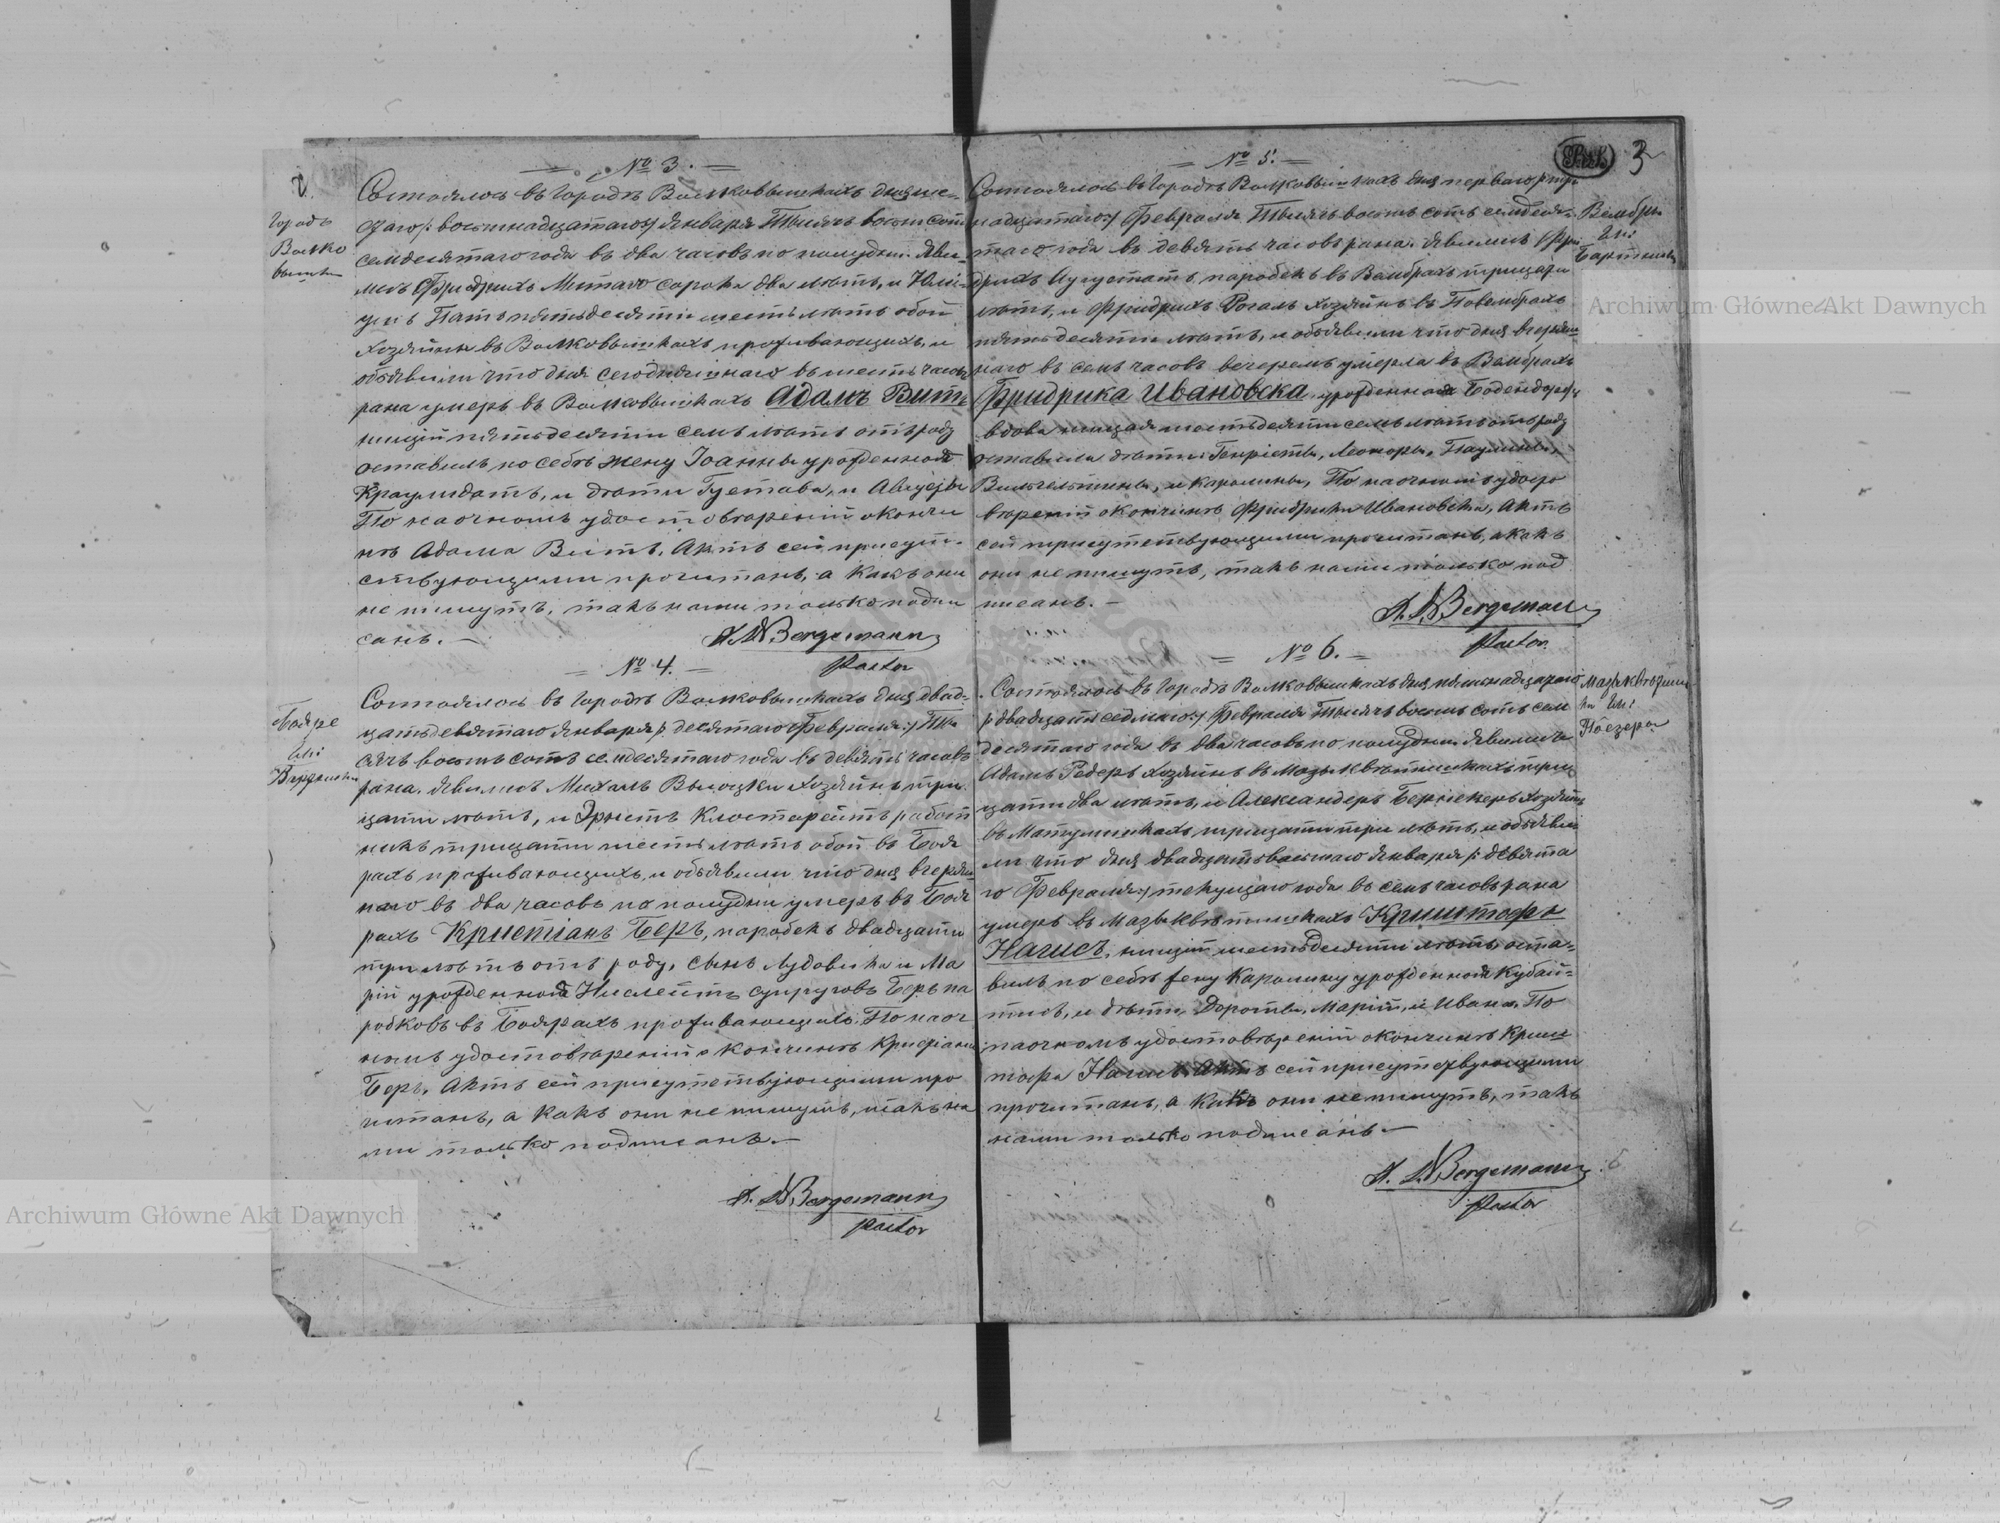 № 3.
2.
Городъ
Волко
вышки
Состоялось въ Городѣ Волковышкахъ дня ше-
стаго /: восемнадцатаго :/ Января Тысяча восемь сотъ
семдесятаго года въ два часовъ по полудни. Яви-
лись Фридрихъ Митагъ сорока два лѣтъ, и Юли-
усъ Патъ пятьдесяти шесть лѣтъ обои
хозяины въ Волковышкахъ проживающихъ, и
объявили что дня сегодняшнаго въ шесть часовъ
рана умеръ въ Волковышкахъ Адамъ Витъ
нищій пятьдесяти семь лѣтъ отъ роду
оставилъ по себѣ жену Іоанны урожденной
и дѣти Густава, и Августы
По наочномъ удостовѣреній о кончи
нѣ Адама Витъ, Актъ сей присут-
ствующими прочитанъ, а какъ они
не пишутъ, такъ нами только подпи
санъ. —
Bergemann
Pastor
№ 4.
Бояре
Гмі:
Состоялось въ Городѣ Волковышкахъ дня двад-
цать девятаго Января /: десятаго Февраля :/ Ты-
сячъ восемь сотъ семдесятаго года въ девять часовъ
рана. Явились Михалъ Высоцки хозяинъ три
цати лѣтъ, и Эрнстъ Клостарейтъ работ
никъ трицати шесть лѣтъ обои въ Боя
рахъ проживающихъ, и объявили что дня вчераш
наго въ два часовъ по полудни умеръ въ Боя
рахъ Кристіанъ Беръ, паробекъ двадцати
три лѣтъ отъ роду, сынъ Лудовика и Ма
рій урожденной Нислейтъ супруговъ Беръ па
робковъ въ Боярахъ проживающихъ. По наоч
номъ удостовѣреній о кончинѣ Кристіана
Беръ, Актъ сей присутствующими про
читанъ, а какъ они не пишутъ, такъ на
ми только подписанъ. —
Bergemann
Pastor
3
№ 5.
Вембры
Гмі:
Состоялось въ Городѣ Волковышкахъ дня перваго /: три
надцатаго :/ Февраля Тысячъ восемь сотъ семдеся-
таго года въ девять часовъ рана. Явились Фри
дрихъ Аугустатъ паробекъ въ Вембрахъ трицати
лѣтъ, и Фридрихъ Рогалъ хозяинъ въ Повембрахъ
пятьдесяти лѣтъ, и объявили что дня вчераш
наго въ семь часовъ вечеремъ умерла въ Вембрахъ
Фридрика Ивановска урожденная Бодендорфъ
вдова нищая шестьдесяти семь лѣтъ отъ роду
оставила дѣти: Генріеты, Леоноры, Паулины,
Вильгельмины, и Каролины, По наочномъ удосто
вѣреній о кончинѣ Фридрики Ивановска, Актъ
сей присутствующими прочитанъ, а какъ
они не пишутъ, такъ нами только под
писанъ. —
Bergemann
Pastor
№ 6.
Гмі:
Поезеры
Состоялось въ Городѣ Волковышкахъ дня пятнадцатаго
/: двадцать седмаго :/ Февраля Тысячъ восемь сотъ сем
десятаго года въ два часовъ по полудни. Явились
Адамъ Редеръ хозяинъ въ Мазыквѣтишкахъ три
цати два лѣтъ, и Александеръ Бернекеръ хозяинъ
въ Матулишкахъ трицати три лѣтъ, и объяви
ли что дня двадцать восьмаго Января /: девята
го Февраля :/ текущаго года въ семь часовъ рана
умеръ въ Мазыквѣтишкахъ Криштофъ
Нагисъ, нищій шестьдесяти лѣтъ, оста-
вилъ по себѣ жену Каролину урожденной Кубай-
тисъ, и дѣти, Дороты, Марій, и Ивана. По
наочномъ удостовѣреній о кончинѣ Криш
тофа Нагисъ Актъ сей присутствующими
прочитанъ, а какъ они не пишутъ, такъ
нами только подписанъ. —
Bergemann
Pastor
Archiwum Główne Akt Dawnych
Archiwum Główne Akt Dawnych